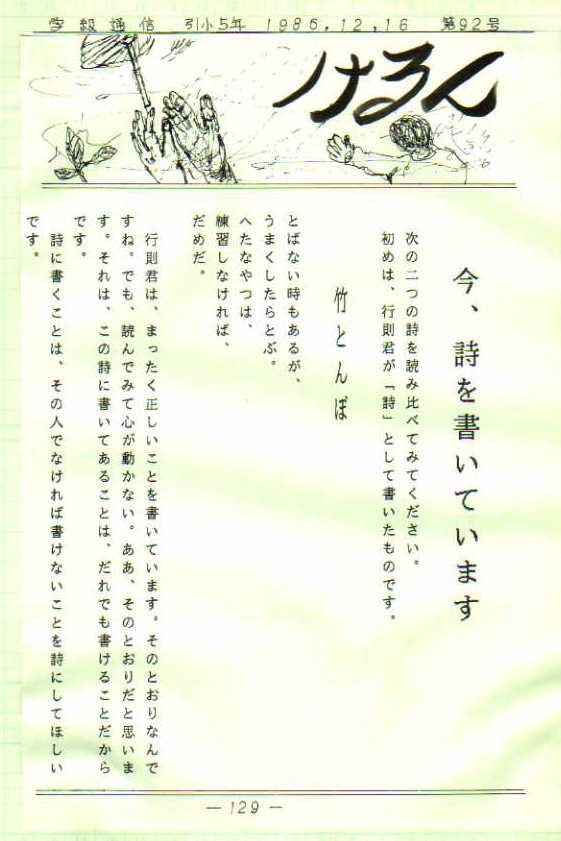 学級通信 引小5年 1986.12.16 第92号
けろん
今、詩を書いています
次の二つの詩を読み比べてみてください。
初めは、行則君が「詩」として書いたものです。
竹とんぼ
とばない時もあるが、
うまくしたらとぶ。
へたなやつは、
練習しなければ、
だめだ。
行則君は、まったく正しいことを書いています。そのとおりなんで
すね。でも、読んでみて心が動かない。ああ、そのとおりだと思いま
す。それは、この詩に書いてあることは、だれでも書けることだから
です。
詩に書くことは、その人でなければ書けないことを詩にしてほしい
です。
— 129 —